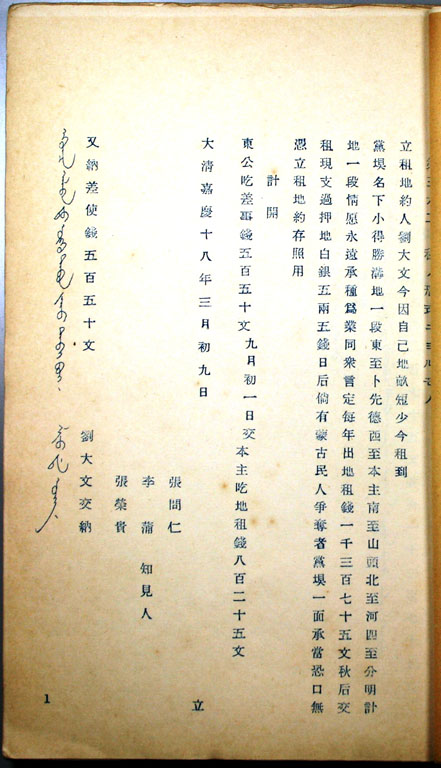 立租地約人劉大文今因自己地畝短少今租到
黨垻名下小得勝溝地一段東至卜先德西至本主南至山頭北至河四至分明計
地一段情愿永遠承種爲業同衆言定每年出地租錢一千三百七十五文秋后交
租現支過押地白銀五兩五錢日后倘有蒙古民人爭奪者黨垻一面承當恐口無
慿立租地約存照用
計開
東公吃差事錢五百五十文九月初一日交本主吃地租錢八百二十五文
大淸嘉慶十八年三月初九日
立
張問仁
李蒲 知見人
張榮貴
又納差使錢五百五十文 劉大文交納
1